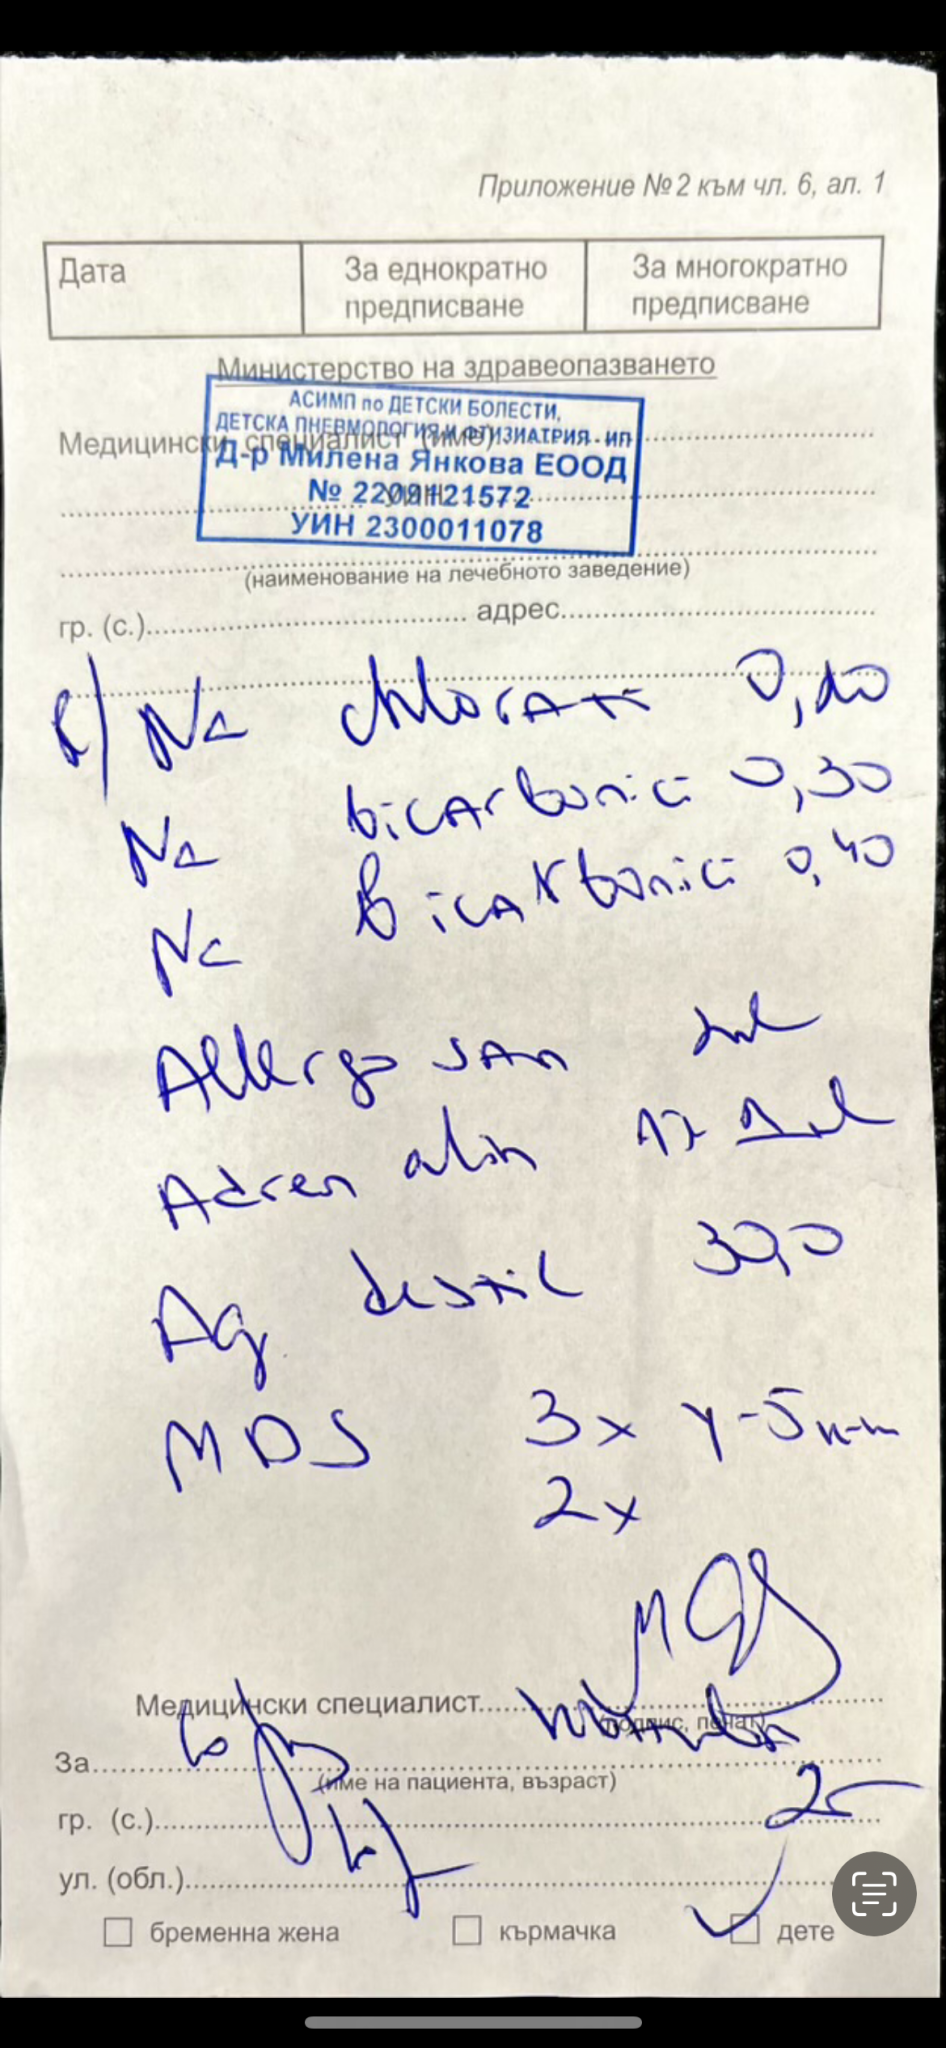 Приложение №2 към чл. 6, ал. 1
Дата
За еднократно предписване
За многократно предписване
Министерство на здравеопазването
АСИМП по ДЕТСКИ БОЛЕСТИ,
ДЕТСКА ПНЕВМОЛОГИЯ И ФТИЗИАТРИЯ - ИП
Медицински специалист (име)
Д-р Милена Янкова ЕООД
№ 2209121572
УИН
УИН 2300011078
(наименование на лечебното заведение)
гр. (с.) адрес
Na
Na bicarbonici 0,30
Na bicarbonici 0,40
Allergosan
Adrenalin
Aq destil 30,0
MDS 3x 4-5
2x
Медицински специалист
(подпис, печат)
За
(име на пациента, възраст)
гр. (с.)
ул. (обл.)
бременна жена кърмачка дете